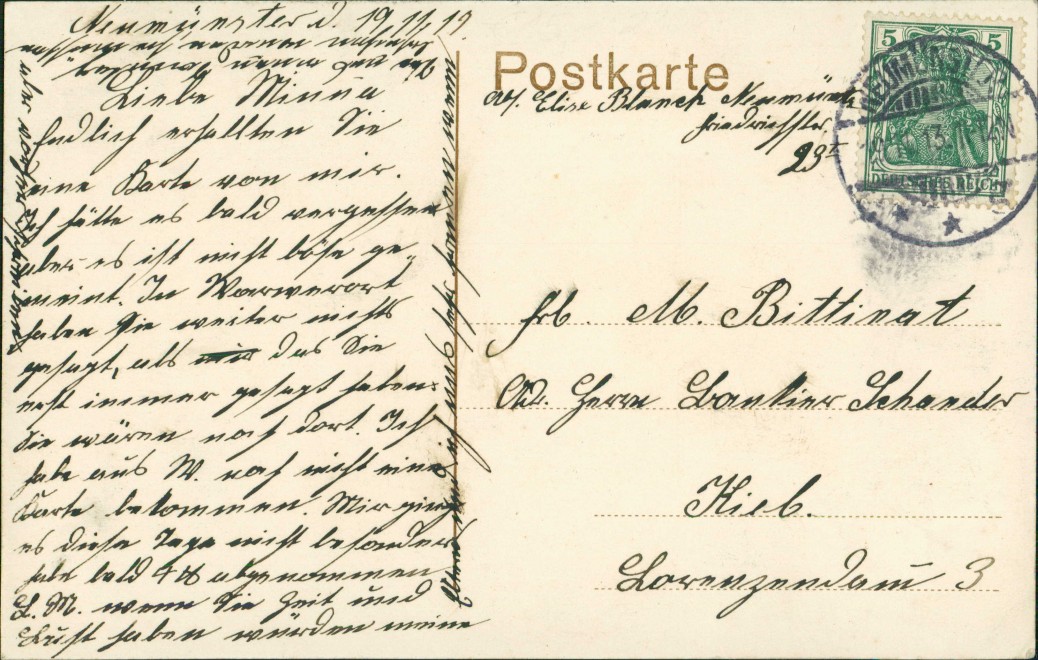 Neumünster d. 19.11.13
Liebe Minna
Endlich erhallten Sie
eine Karte von mir.
Ich hätte es bald vergessen
aber es ist nicht böse ge-
meint. In Warwerort
haben Sie weiter nichts
gesagt, als das Sie
erst immer gesagt haben
Sie wären noch dort. Ich
habe aus W. noch nicht eine
Karte bekommen. Mir ging
es diese Tage nicht besonders
habe bald 4 ℔ abgenommen
L. M. wenn Sie Zeit und
Lust haben würden meine
Postkarte
Abs. Elise Blanck Neumünster
Friedrichstr.
5 5
DEUTSCHES REICH
Frl. M. Bittinat
Adr. Herrn Bankier Schander
Kiel.
Lorenzendam 3